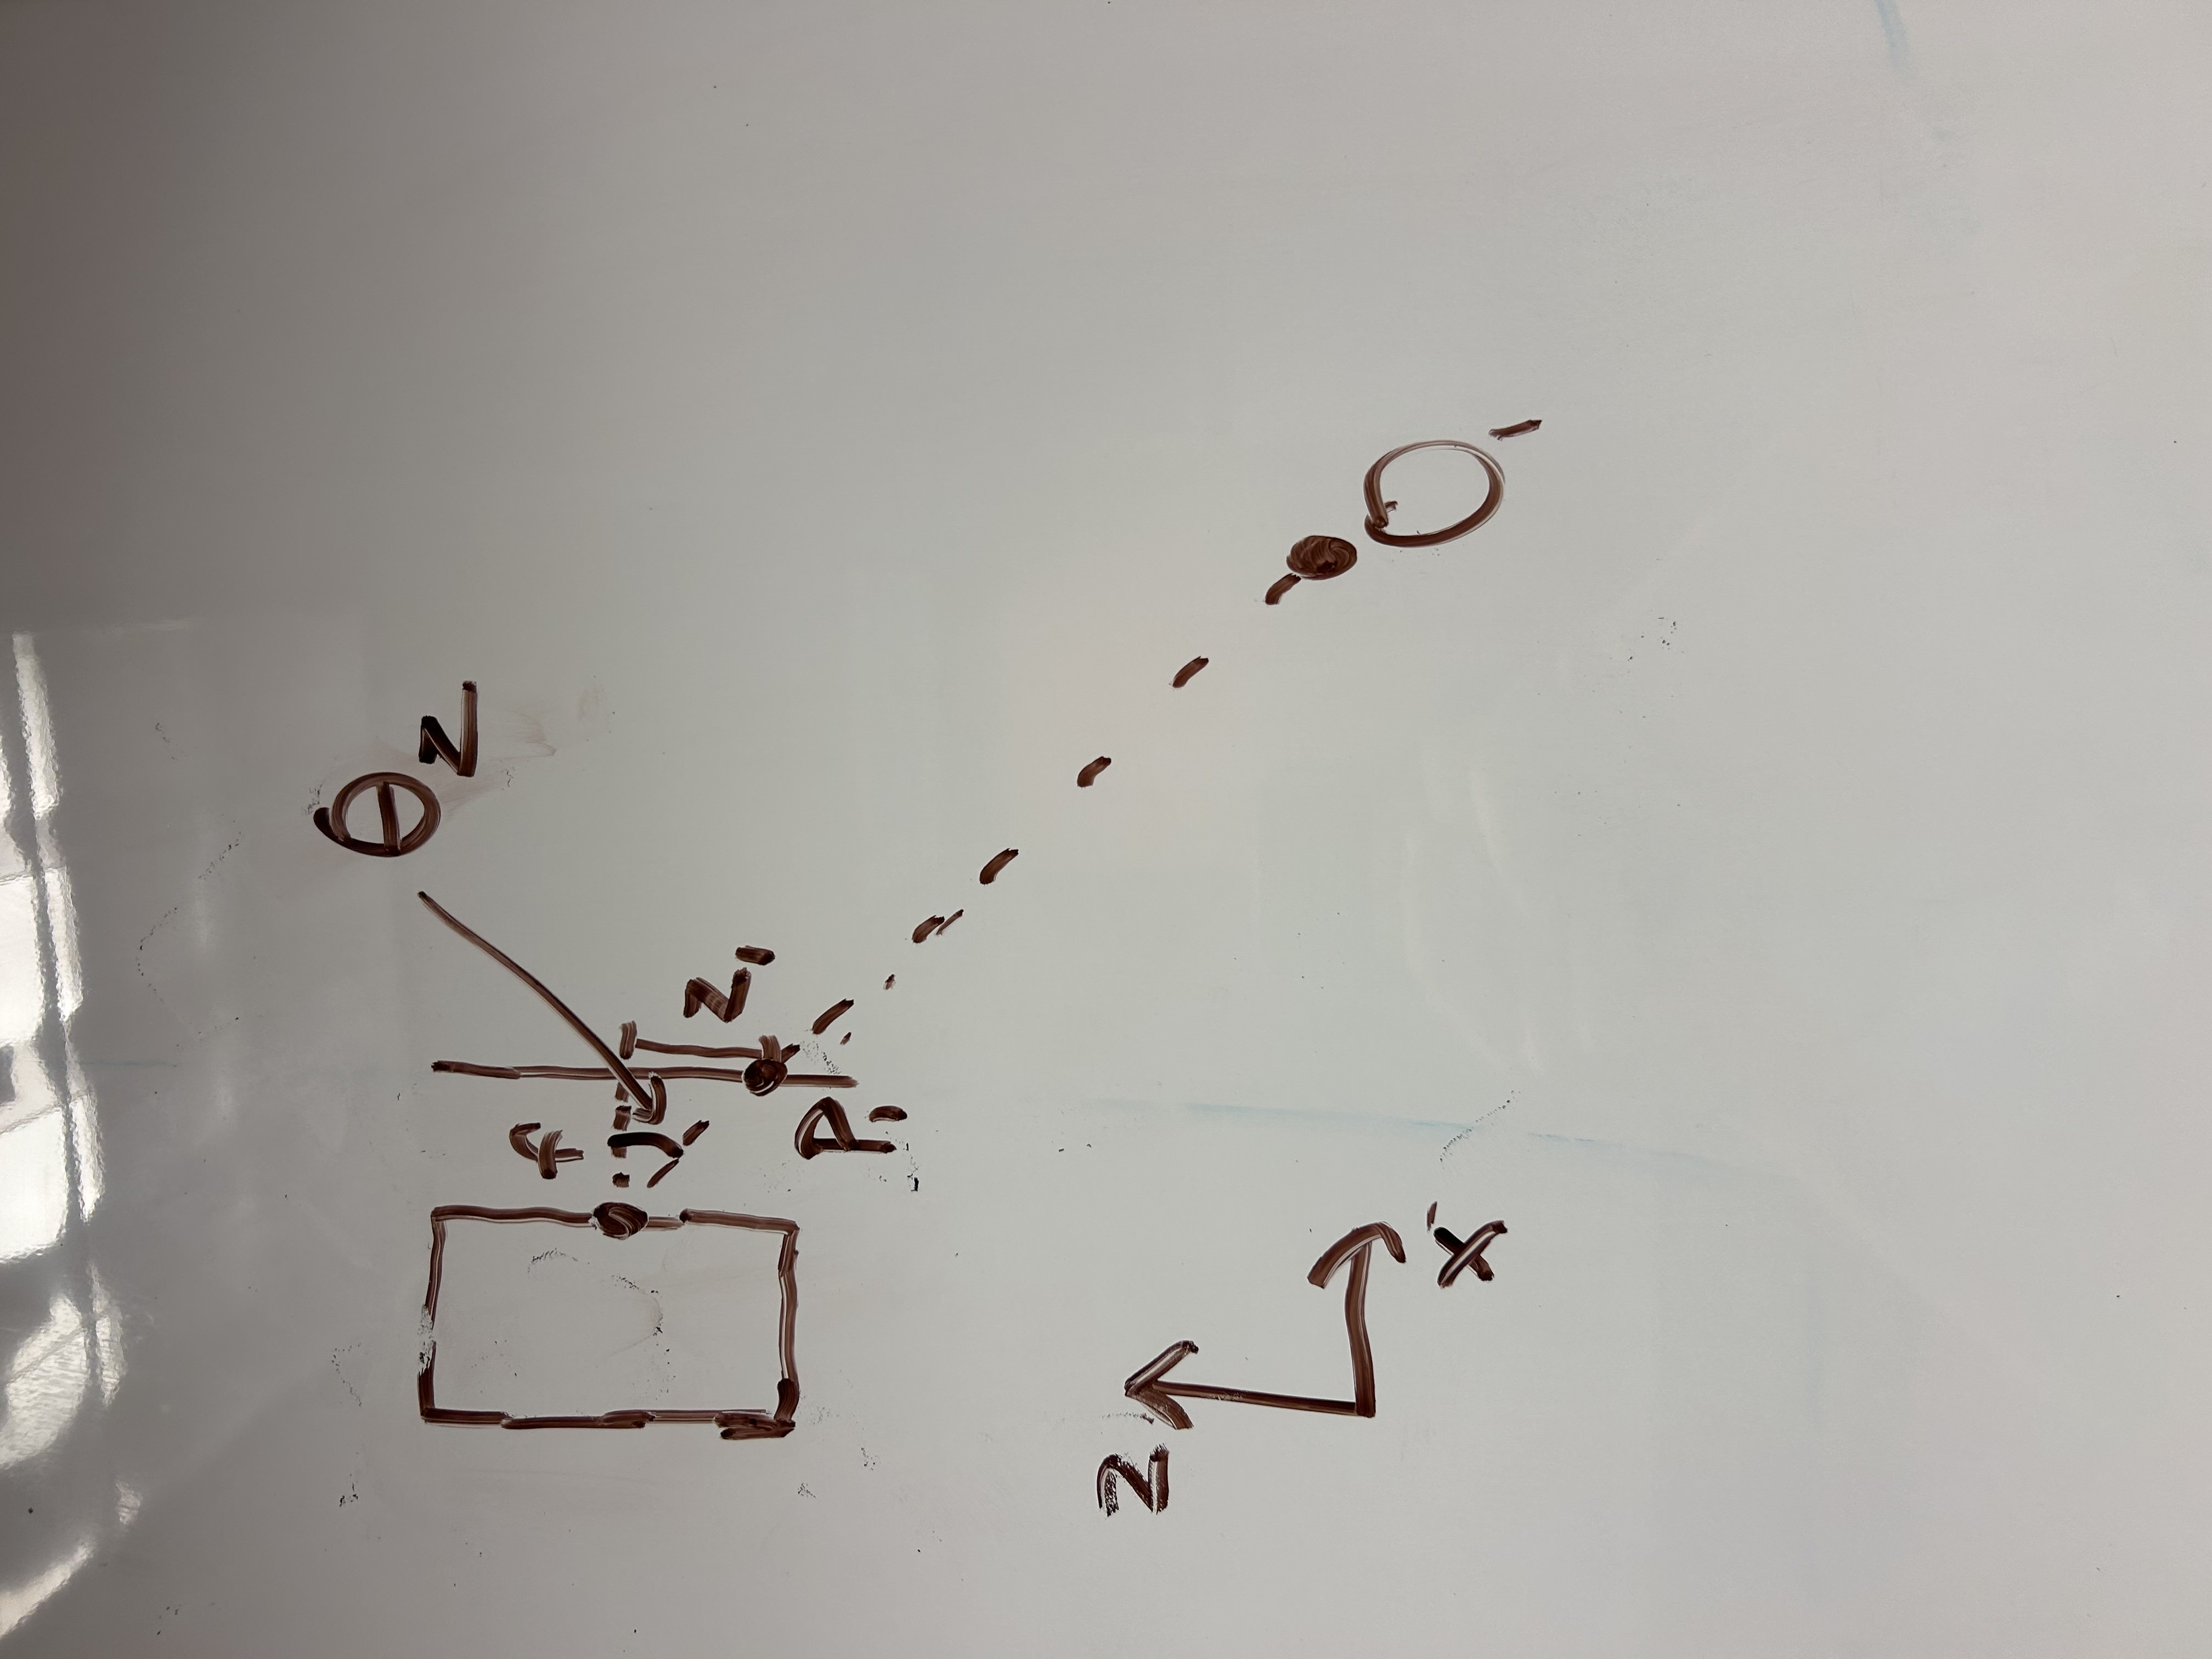 θz
f
z₁
P₁
z
x
O₁